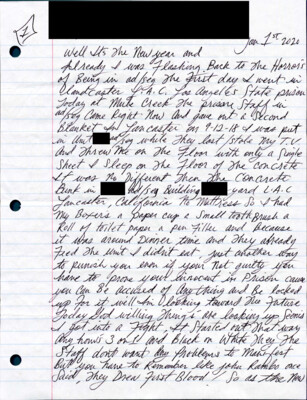 Jan 1st 2020
Well Its The New year and
Already I was Flashing Back to the Horror's
of Being in ad/seg The First day I went in
Lancaster L.A.C. Los Angeles State prison
Today at Mule Creek The prison Staff in
ad/seg Came Right Now And gave out a Second
Blanket In Lancaster on 9-12-18 I was put
in Unit ad/seg while They lost/stole my T.V.
And Threw me on The Floor with only a Single
Sheet I Sleep on The Floor of The Concrete
It was No Different Then The Concrete
Bunk in ad/seg Building yard L.A.C
Lancaster, California No Mattress So I had
My Boxers a paper cup a Small tooth Brush a
Roll of toilet paper a pen Filler and because
it was around Dinner time and They already
Feed The Unit I didnt eat. just another way
to punish you even if your Not guilty you
have to prove your innocent in Prison cause
you can Be accused of Anything and Be locked
up For it well Im Looking toward The Future
Today God willing Thing's are looking up Since
I got into a Fight, it Started out That way
Any how's 3 on 1 and Black on White They The
Staff dont want any problems to Manifest
But you have to Remember like John Rambo once
Said, They Drew First Blood! So as the New